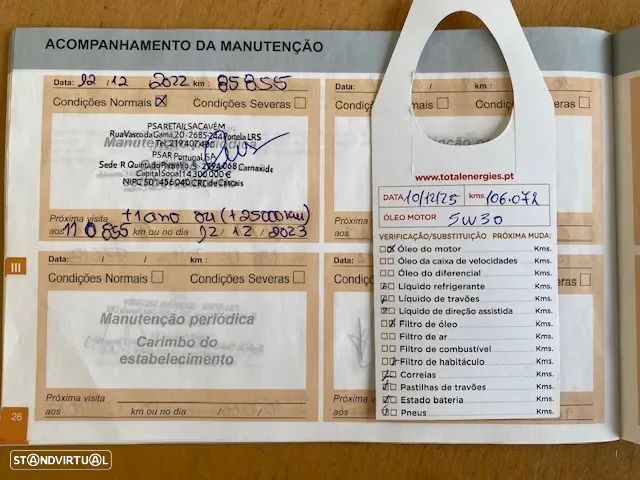 ACOMPANHAMENTO DA MANUTENÇÃO
Data: 12 / 12 2022 km: 85855
Condições Normais Condições Severas
PSA RETAIL SACAVÉM
Rua Vasco da Gama, 20 - 2685-244 Portela LRS
Tel. 219407400
PSAR Portugal, SA
Carnaxide
Capital Social 14.300.000 €
NIPC 501 456 040 CRC de Cascais
Próxima visita +1 ano ou (+25000km)
aos 110855 km ou no dia 12 / 12 / 2023
Data: / / km:
Condições Normais Condições Severas
Manutenção periódica
Carimbo do
estabelecimento
Próxima visita
aos km ou no dia / /
III
26
www.totalenergies.pt
DATA 10/12/25 kms. 106.072
ÓLEO MOTOR 5W30
VERIFICAÇÃO/SUBSTITUIÇÃO PRÓXIMA MUDA:
Óleo do motor Kms.
Óleo da caixa de velocidades Kms.
Óleo do diferencial Kms.
Líquido refrigerante Kms.
Líquido de travões Kms.
Líquido de direção assistida Kms.
Filtro de óleo Kms.
Filtro de ar Kms.
Filtro de combustível Kms.
Filtro de habitáculo Kms.
Correias Kms.
Pastilhas de travões Kms.
Estado bateria Kms.
Pneus Kms.
STANDVIRTUAL